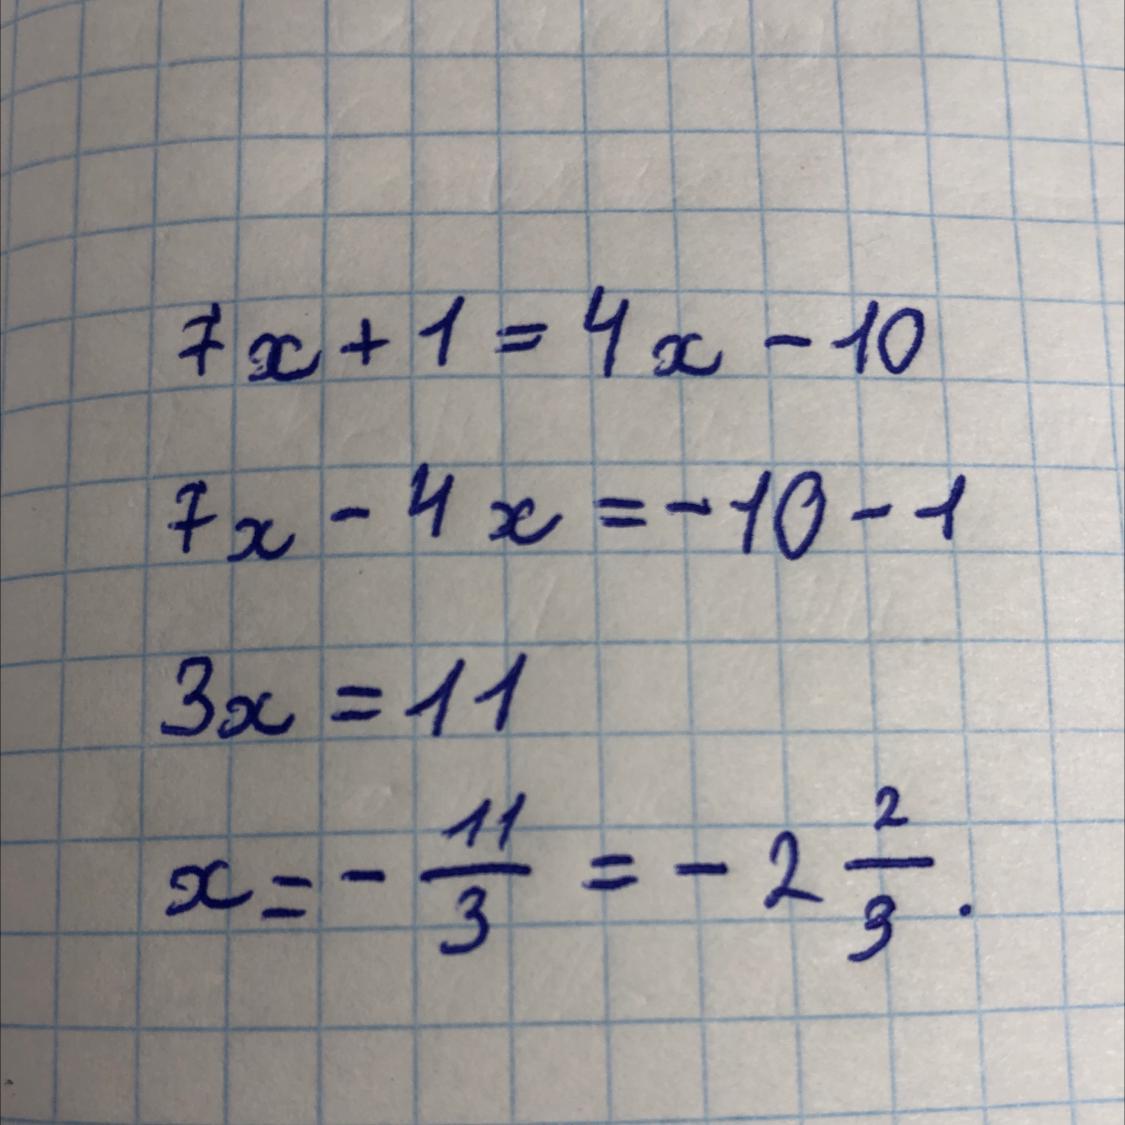 7x + 1 = 4x - 10
7x - 4x = -10 - 1
3x = 11
x = - 11/3 = - 2 2/3 .